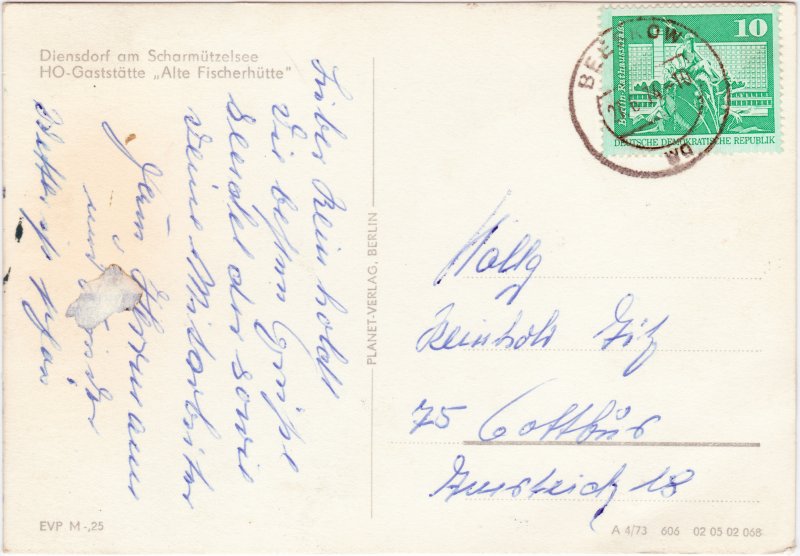 Diensdorf am Scharmützelsee
HO-Gaststätte „Alte Fischerhütte"
Lieber Reinholdt
Die besten Grüße
sendet dir sowie
deine Mitarbeiter
Hermann
und Kinder
Wetter ist schön
PLANET-VERLAG, BERLIN
EVP M -,25
BEESKOW
Berlin Rathausstraße
10
DEUTSCHE DEMOKRATISCHE REPUBLIK
Kollg
Reinhold
75 Cottbus
18
A 4/73 606 02 05 02 068